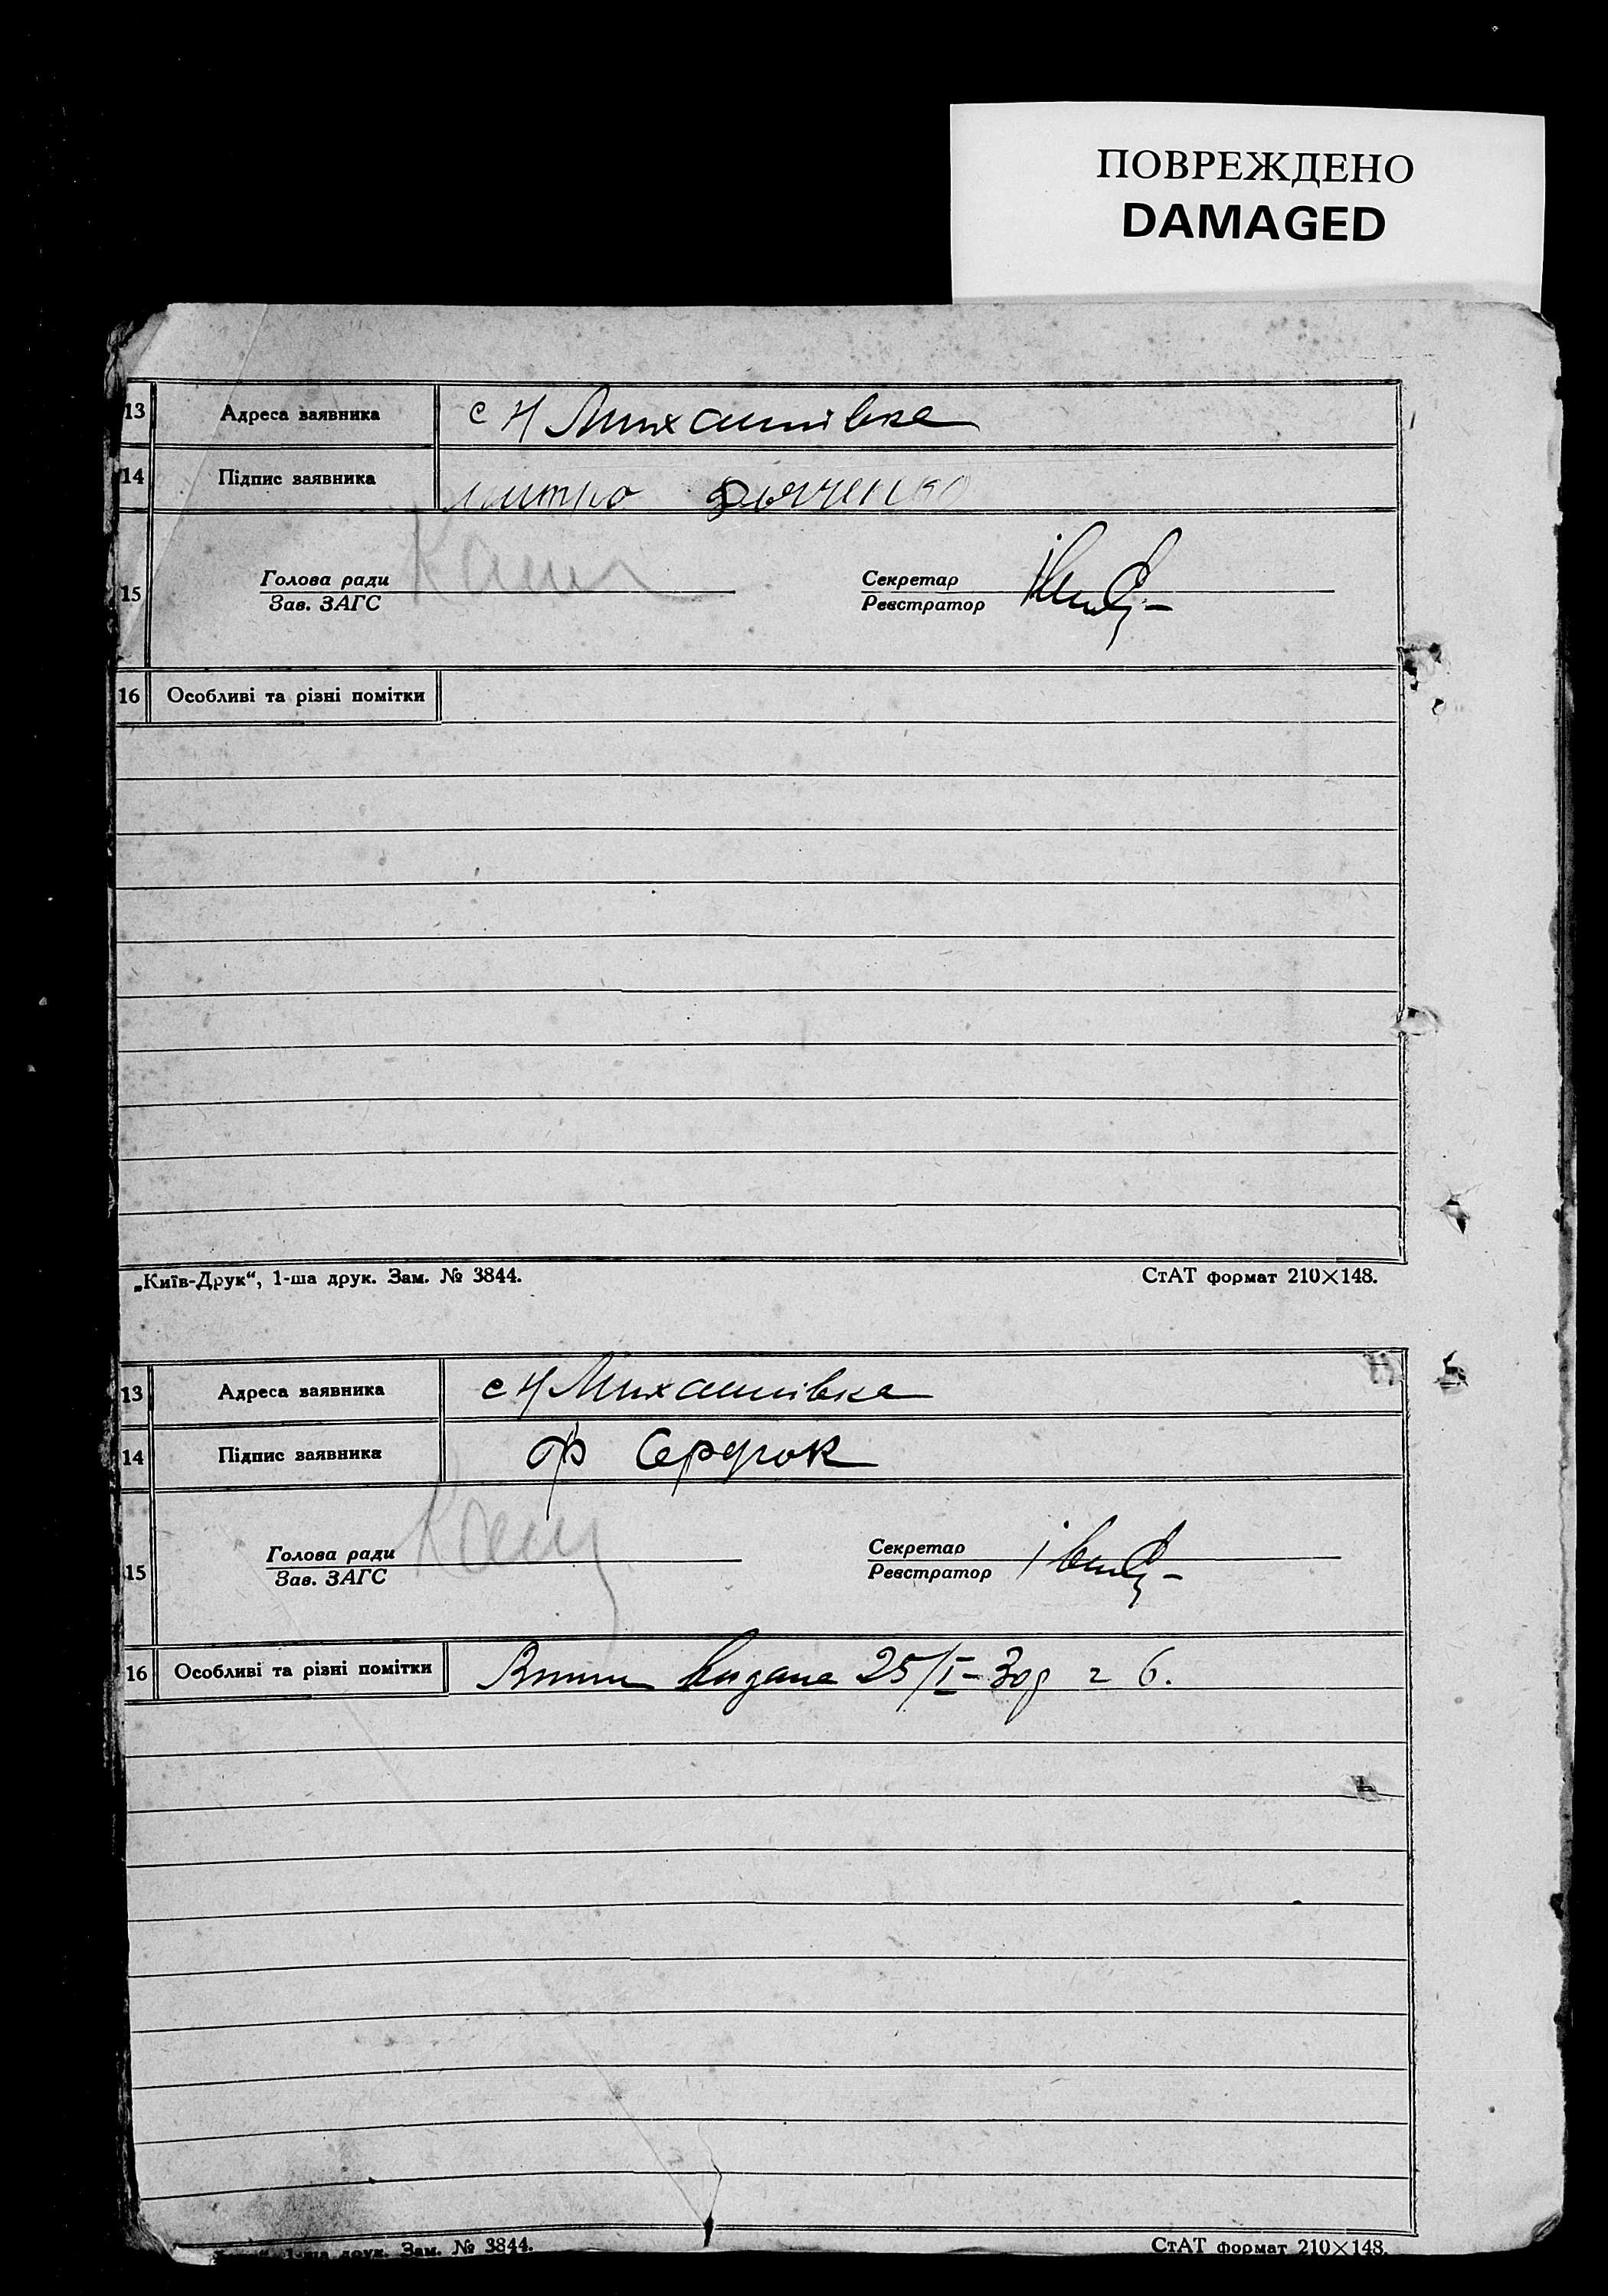 ПОВРЕЖДЕНО
DAMAGED
13 Адреса заявника с Н Михайлівка
14 Підпис заявника Дяченко
15 Голова ради
Зав. ЗАГС
Секретар
Реєстратор
16 Особливі та різні помітки
„Київ-Друк“, 1-ша друк. Зам. № 3844. СтАТ формат 210×148.
13 Адреса заявника с Н Михайлівка
14 Підпис заявника Ф Сердюк
15 Голова ради
Зав. ЗАГС
Секретар
Реєстратор
16 Особливі та різні помітки видана 25/I-30р
1-ша друк. Зам. № 3844. СтАТ формат 210×148.